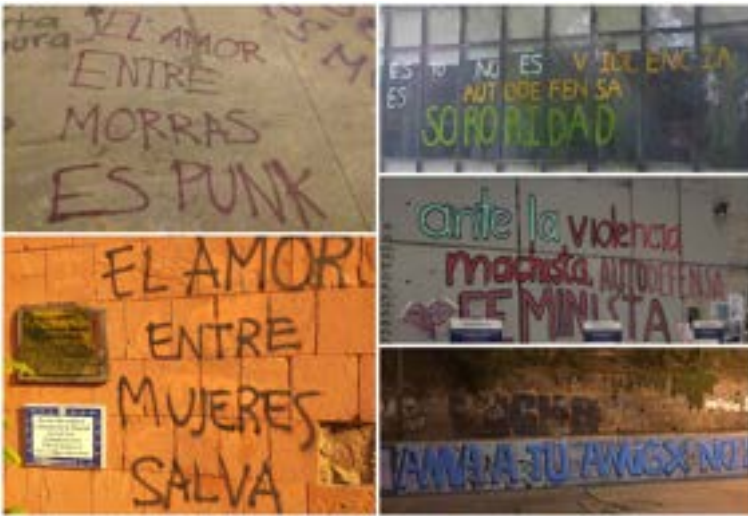 EL AMOR
ENTRE
MORRAS
ES PUNK
EL AMOR
ENTRE
MUJERES
SALVA
ESTO NO ES VIOLENCIA
ES AUTODEFENSA
SORORIDAD
ante la violencia
machista, AUTODEFENSA
FEMINISTA
AMA A TU AMIGX NO